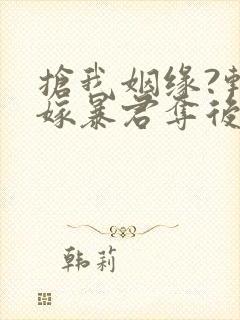 搶我姻缘?
嫁暴君夺後
韩莉